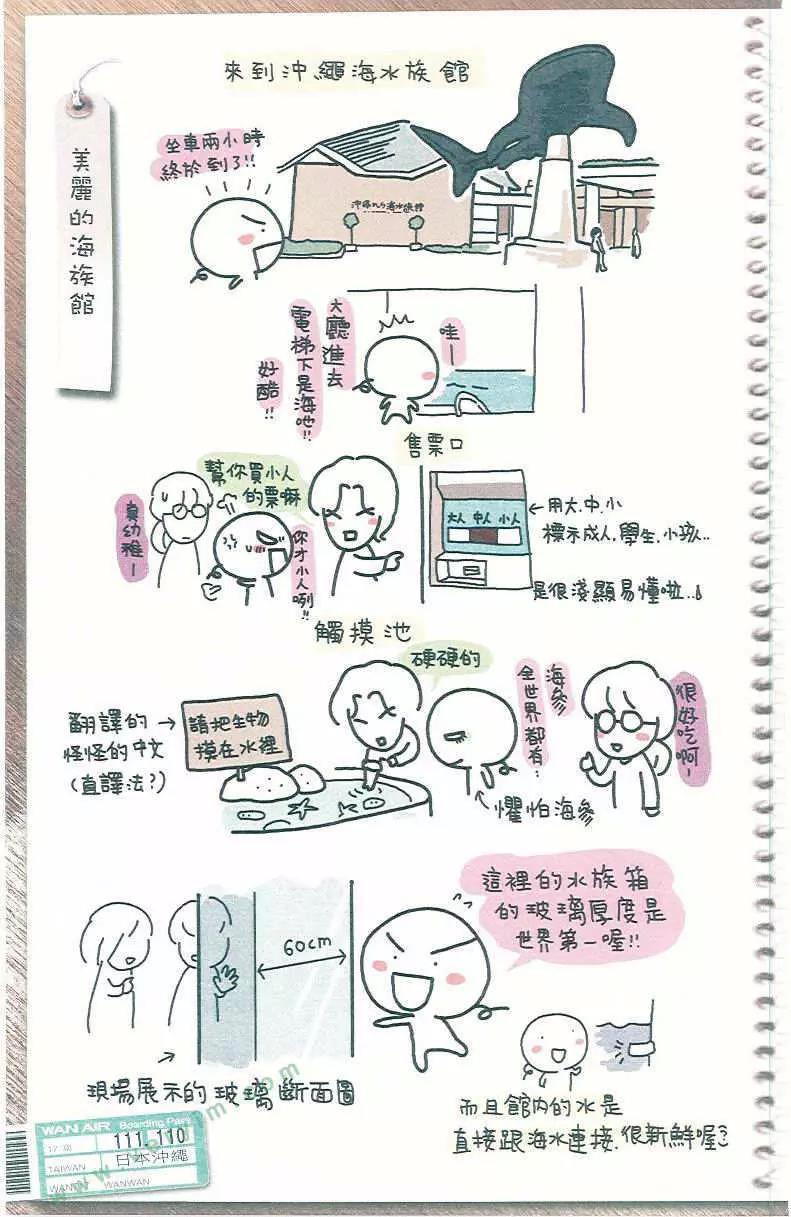 來到沖繩海水族館
美麗的海族館
坐車兩小時
終於到了!!
大廳進去
電梯下是海吔!!
好酷!!
哇—
售票口
幫你買小人
的票嘛
真幼稚—
你才小人咧!!
大人 中人 小人
←用大.中.小
標示成人.學生.小孩..
是很淺顯易懂啦..!
觸摸池
硬硬的
翻譯的→
怪怪的中文
(直譯法?)
請把生物
摸在水裡
海參
全世界都有..
很好吃啊~
懼怕海參
這裡的水族箱
的玻璃厚度是
世界第一喔!!
60cm
現場展示的玻璃斷面圖
而且館內的水是
直接跟海水連接.很新鮮喔~?
WAN AIR Boarding Pass
111.110
TAIWAN
日本沖繩
WANWAN